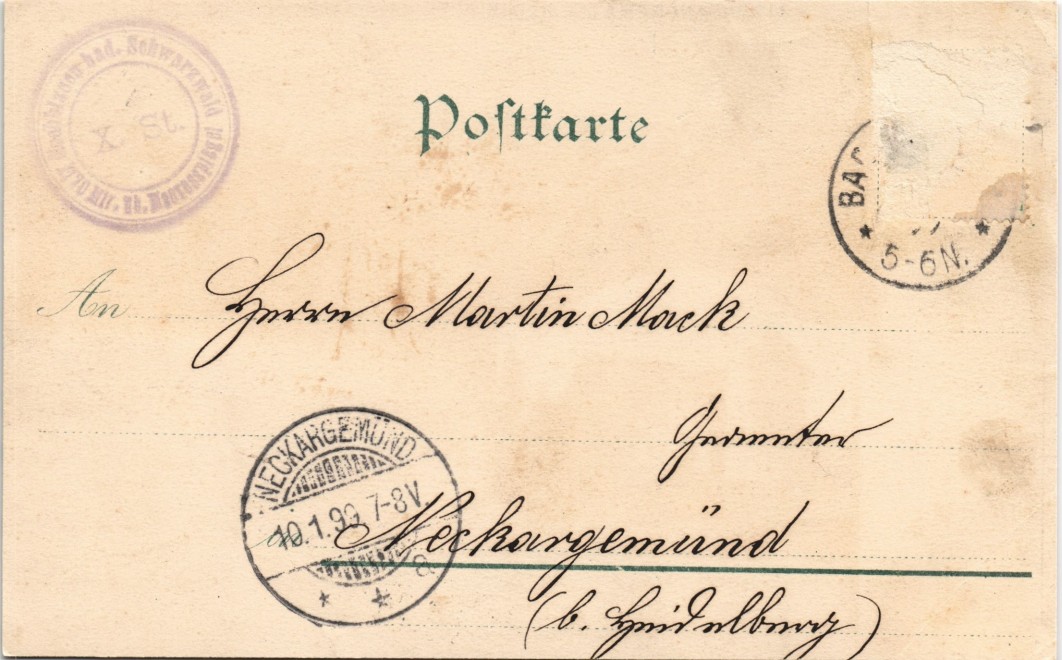 bad. Schwarzwald
X. St.
Postkarte
BA
5-6N.
An
Herrn Martin Mack
Geometer
NECKARGEMÜND
10.1.99 7-8V.
a
in Neckargemünd
(b. Heidelberg)